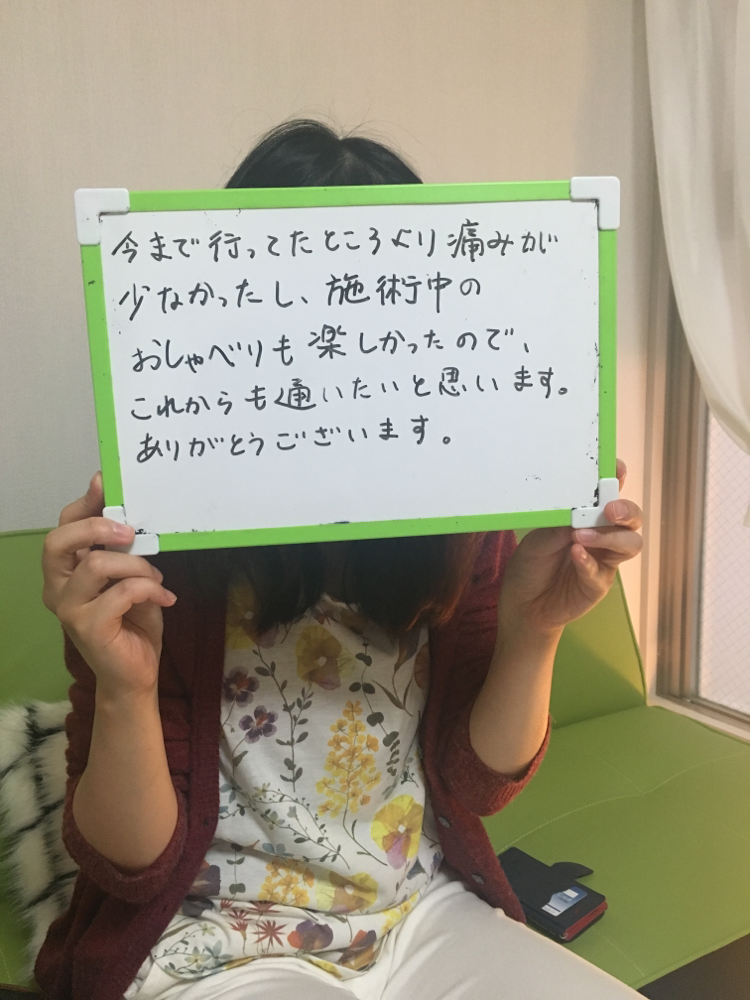 今まで行ってたところより痛みが
少なかったし、施術中の
おしゃべりも楽しかったので、
これからも通いたいと思います。
ありがとうございます。